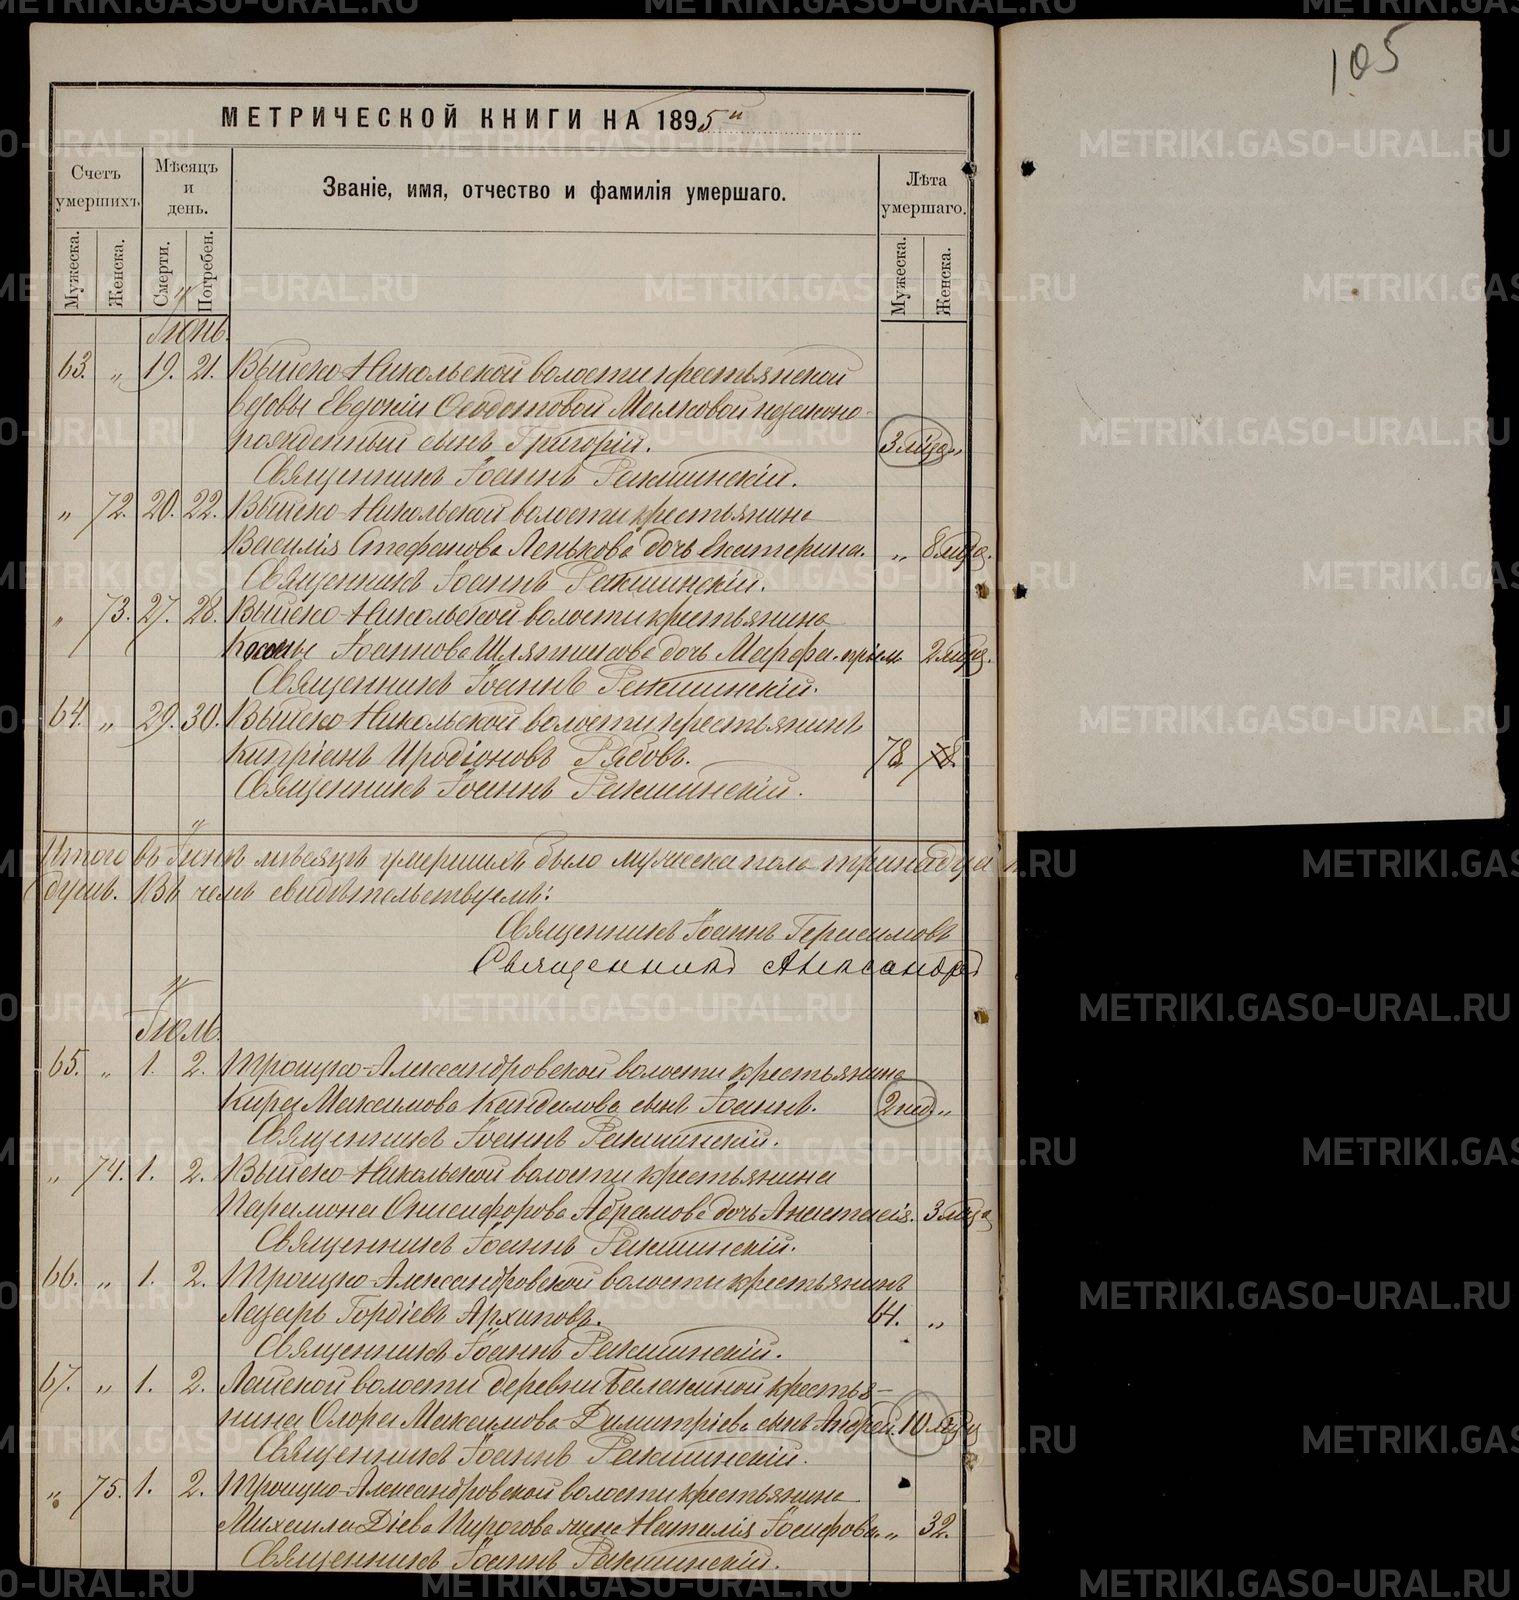 105
МЕТРИЧЕСКОЙ КНИГИ НА 1895й
Счетъ умершихъ.
Мѣсяцъ и день.
Званіе, имя, отчество и фамилія умершаго.
Лѣта умершаго.
Мужеска.
Женска.
Смерти.
Погребен.
Мужеска.
Женска.
Іюнь.
63. " 19. 21. Выйско-Никольской волости крестьянской
вдовы Евдокіи Ѳеодотовой Малковой незаконо-
рожденный сынъ Григорій. 3 м-ца "
Священникъ Іоаннъ Ракшинскій.
" 72. 20. 22. Выйско-Никольской волости крестьянина
Василія Стефанова Ленькова дочь Екатерина. " 8 м-ца.
Священникъ Іоаннъ Ракшинскій.
" 73. 27. 28. Выйско-Никольской волости крестьянина
Космы Іоаннова Шляпникова дочь Марфа. 2 м-ца.
Священникъ Іоаннъ Ракшинскій.
64. " 29. 30. Выйско-Никольской волости крестьянинъ
Кипріанъ Иродіоновъ Рябовъ. 78 78.
Священникъ Іоаннъ Ракшинскій.
Итого въ Іюнѣ мѣсяцѣ умершихъ было мужеска пола тринадца
душъ. Въ чемъ свидѣтельствуемъ:
Священникъ Іоаннъ Герасимовъ
Священникъ Александръ
Іюль.
65. " 1. 2. Троицко-Александровской волости крестьянина
Кира Максимова Кандалова сынъ Іоаннъ. 2 нед. "
Священникъ Іоаннъ Ракшинскій.
" 74. 1. 2. Выйско-Никольской волости крестьянина
Парамона Онисифорова Абрамова дочь Анастасія. 3 м-ца
Священникъ Іоаннъ Ракшинскій.
66. " 1. 2. Троицко-Александровской волости крестьянинъ
Лазарь Гордіевъ Архиповъ. 64. "
Священникъ Іоаннъ Ракшинскій.
67. " 1. 2. Лайской волости деревни Балакиной крестья-
нина Флора Максимова Димитріева сынъ Андрей. 10 м-ц
Священникъ Іоаннъ Ракшинскій.
" 75. 1. 2. Троицко-Александровской волости крестьянина
Михаила Діева Пирогова жена Наталія Іосифова. " 32.
Священникъ Іоаннъ Ракшинскій.
METRIKI.GASO-URAL.RU